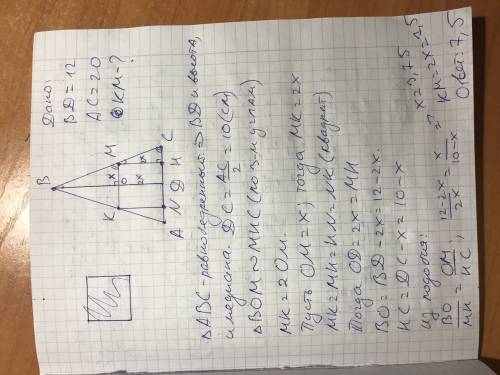 Дано:
BD = 12
AC = 20
KM = ?
B
K
M
x
O
2x
2x
A
N
D
H
C
△ABC - равнобедренный ⇒ BD и высота,
и медиана. DC = AC/2 = 10 (см)
△BOM ∾ MHC (по 3-м углам)
MK = 2OM.
Пусть OM = x; тогда MK = 2x
MK = MH = HN = NK (квадрат)
Тогда OD = 2x = MH
BO = BD - 2x = 12 - 2x.
HC = DC - x = 10 - x
Из подобия:
BO/MH = OM/HC, 12-2x/2x = x/10-x ⇒ x = 3,75
KM = 2x = 7,5
Ответ: 7,5